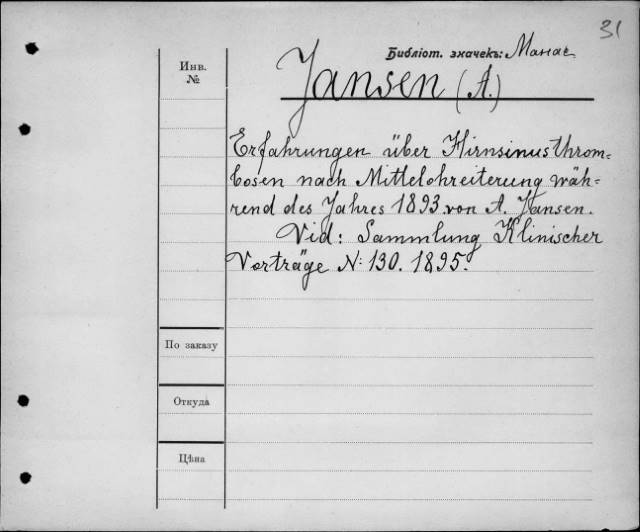 31
Библіот. значекъ: Манас
Инв.
№
Jansen (A.)
Erfahrungen über Hirnsinus Throm=
bosen nach Mittelohreiterung wäh=
rend des Jahres 1893. von A. Jansen.
Vid: Sammlung Klinischer
Vorträge N: 130. 1895.
По заказу
Откуда
Цѣна